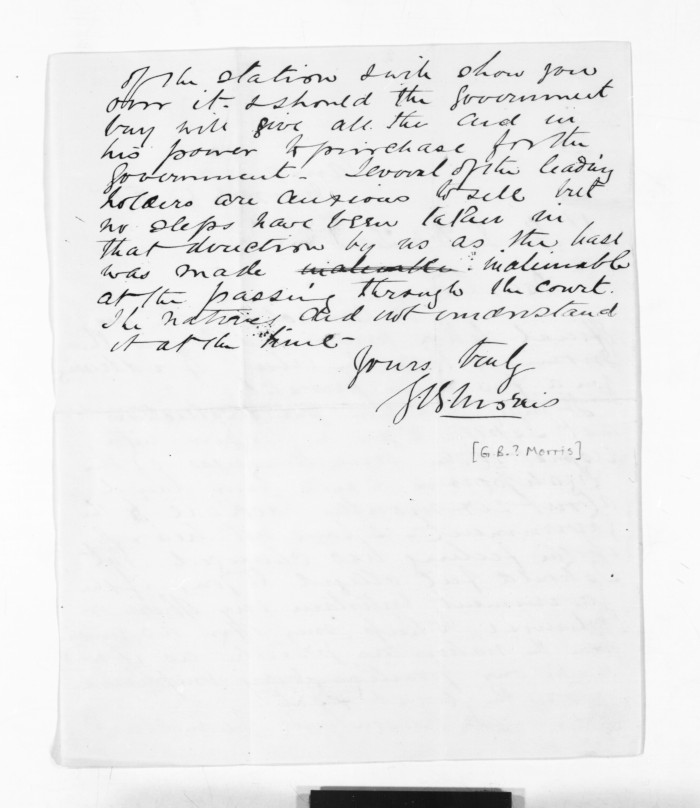 of the station & will show you
over it. & should the Government
buy will give all the aid in
his power to purchase for the
Government. Several of the leading
holders are anxious to sell but
no steps have been taken in
that direction by us as the
was made inalienable
at the passing through the court.
The natives did not understand
it at the time
Yours truly
G B Morris
[G. B.? Morris]